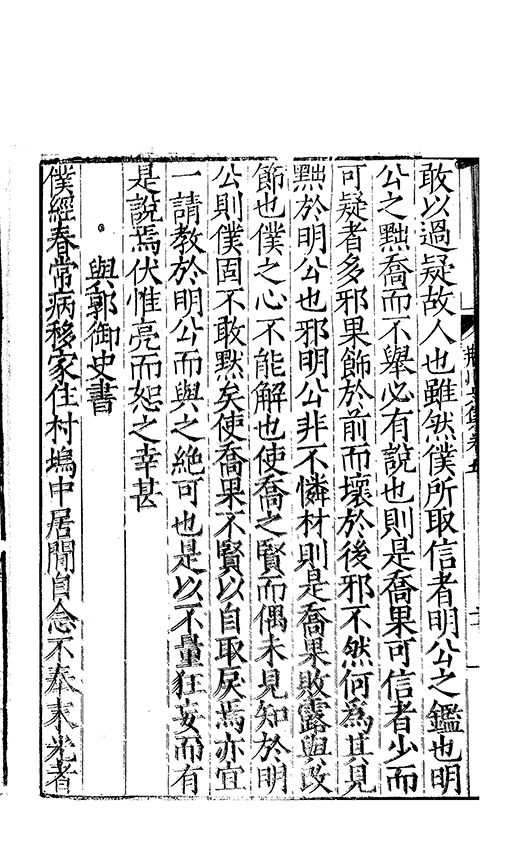 敢以過疑故人也雖然僕所取信者明公之鑑也明
公之黜喬而不舉必有說也則是喬果可信者少而
可疑者多邪果飾於前而壞於後邪不然何為其見
黜於明公也邪明公非不憐材則是喬果敗露與改
節也僕之心不能解也使喬之賢而偶未見知於明
公則僕固不敢默矣使喬果不賢以自取戾焉亦宜
一請教於明公而與之絶可也是以不量狂妄而有
是說焉伏惟亮而恕之幸甚
與郭御史書
僕經春常病移家住村塢中居閒自念不奉末光者